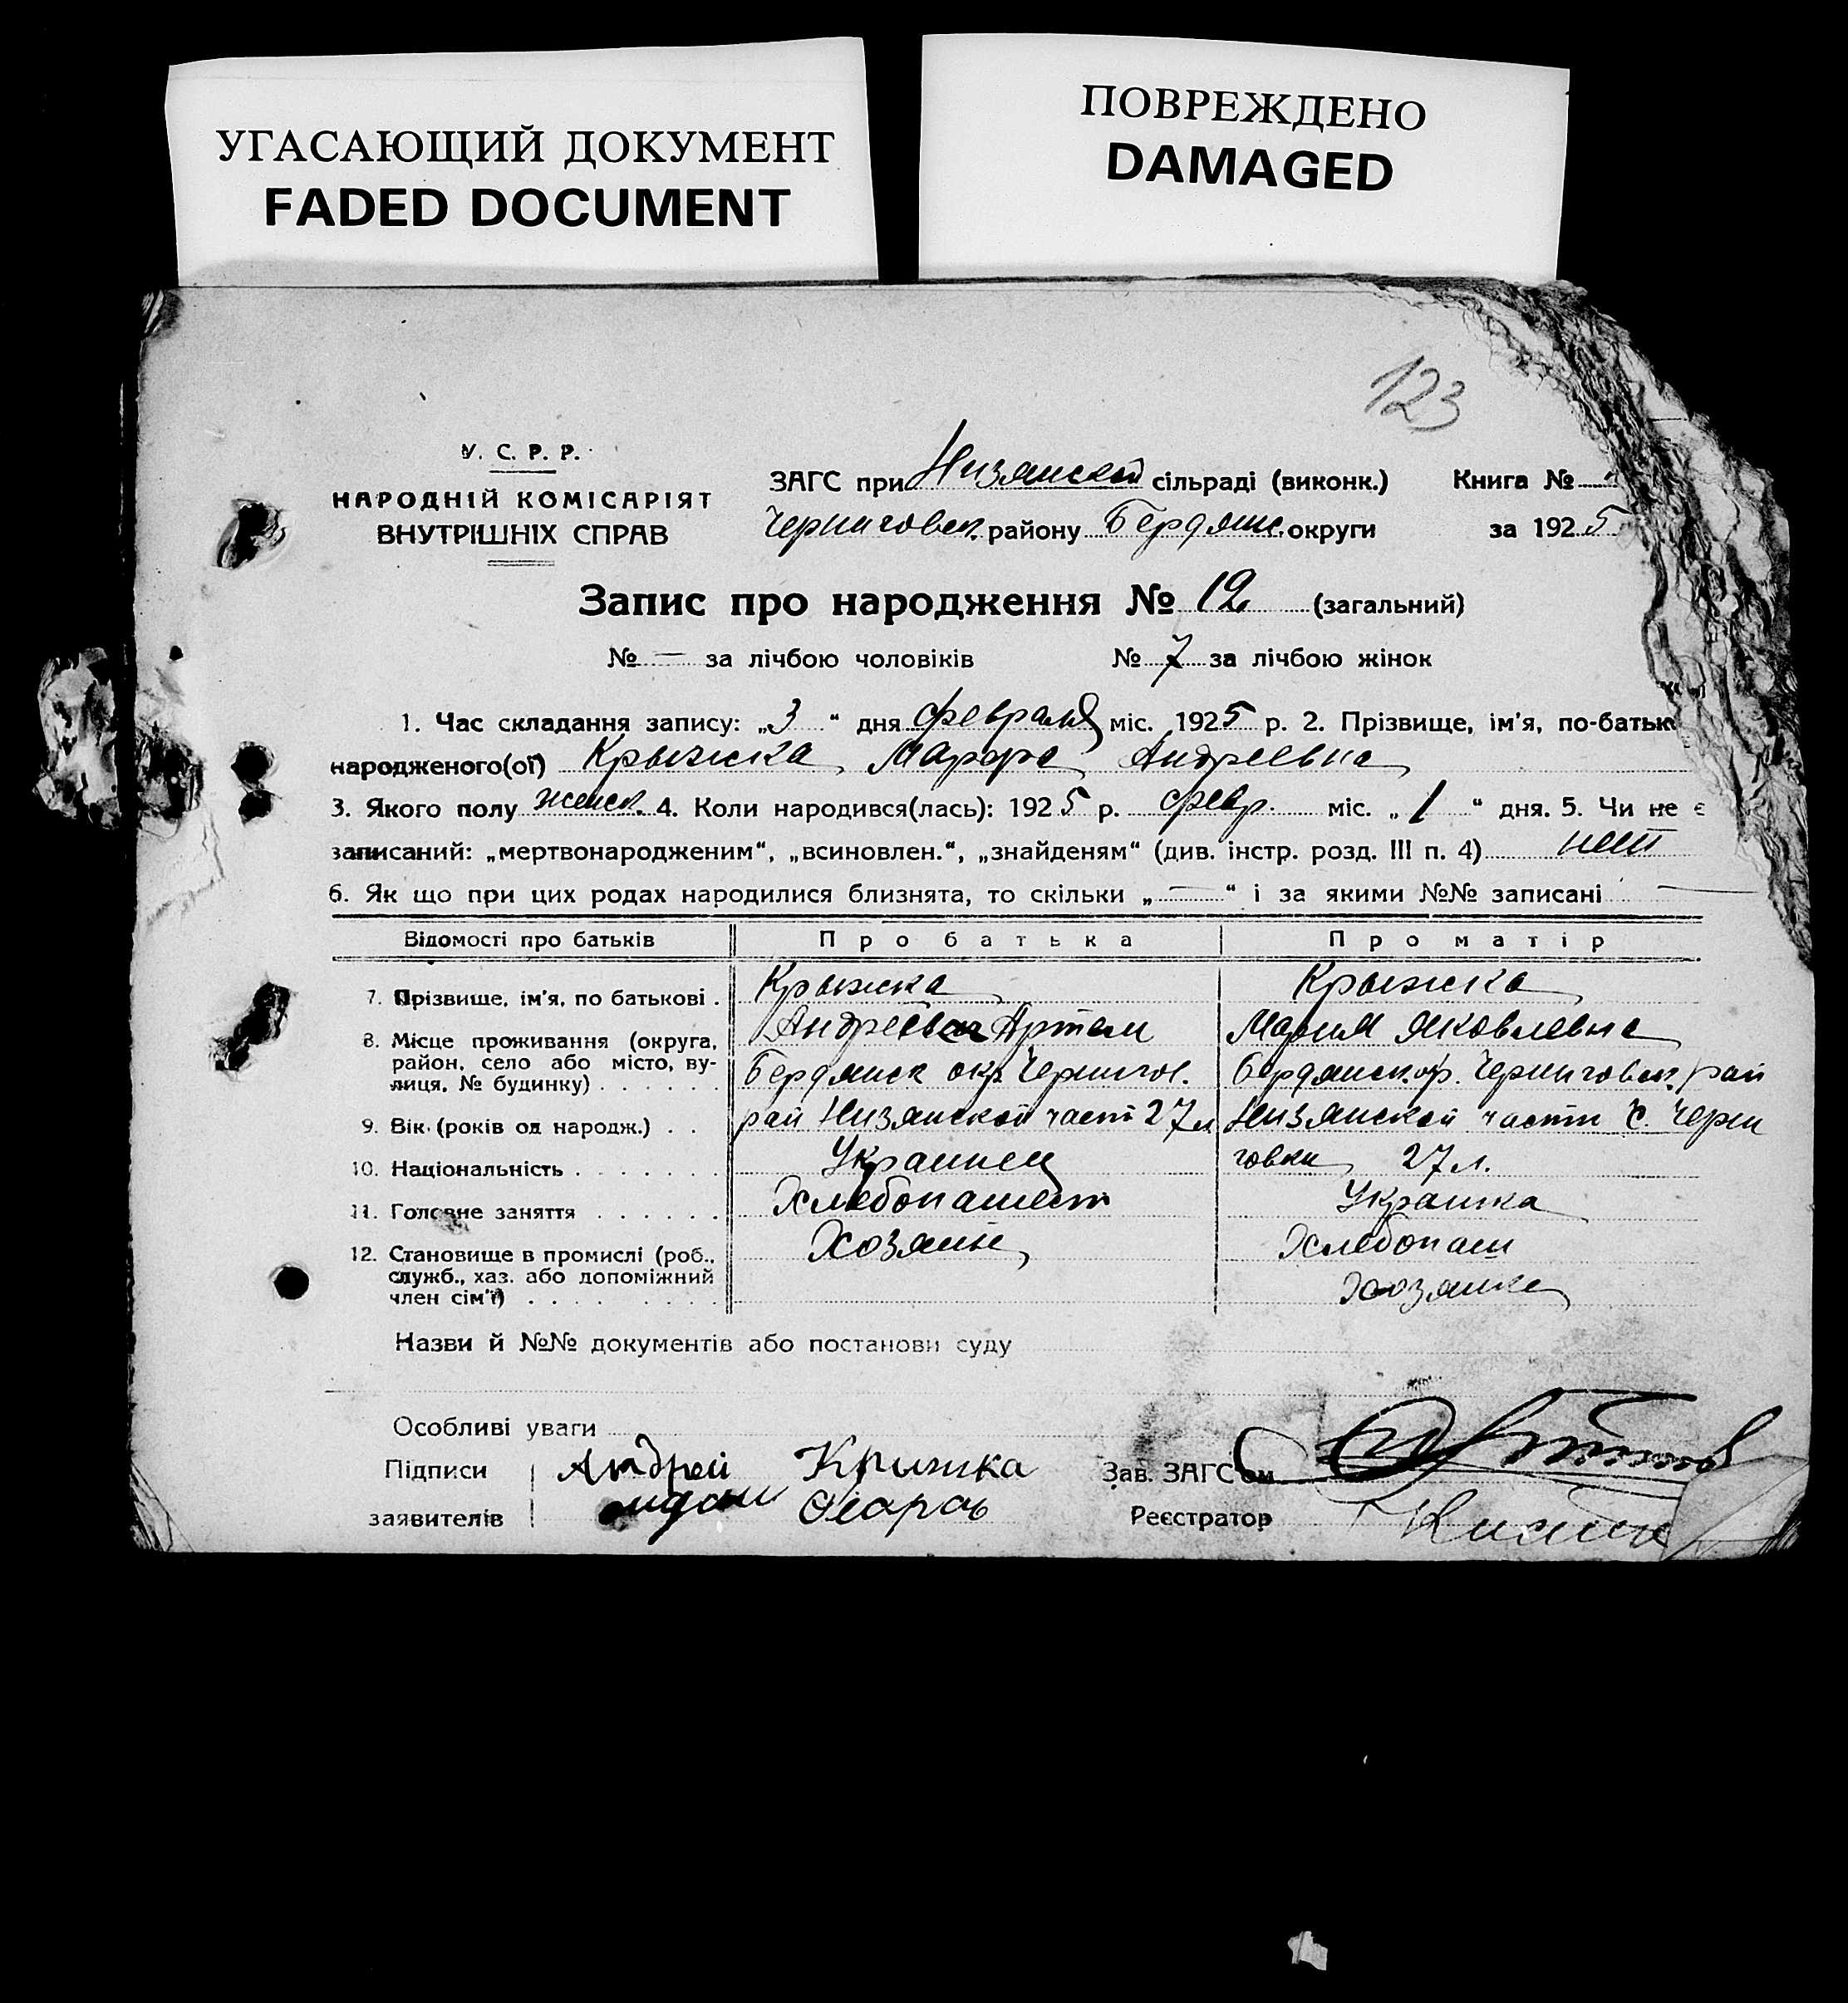 УГАСАЮЩИЙ ДОКУМЕНТ
FADED DOCUMENT
ПОВРЕЖДЕНО
DAMAGED
123
У. С. Р. Р.
НАРОДНІЙ КОМІСАРІЯТ
ВНУТРІШНІХ СПРАВ
ЗАГС при Низянской сільраді (виконк.) Книга №
Черниговск. району Бердянс. округи за 1925
Запис про народження № 12 (загальний)
№ — за лічбою чоловіків № 7 за лічбою жінок
1. Час складання запису: „3“ дня февраля міс. 1925 р. 2. Прізвище, ім'я, по-батьк
народженого(ої) Крыжка Марфа Андреевна
3. Якого полу женск. 4. Коли народився(лась): 1925 р. февр. міс. „1“ дня. 5. Чи не є
записаний: „мертвонародженим“, „всиновлен.“, „знайденям“ (див. інстр. розд. III п. 4) нет
6. Як що при цих родах народилися близнята, то скільки „—“ і за якими №№ записані —
Відомості про батьків Про батька Про матір
7. Прізвище, ім'я, по батькові . Крыжка Крыжка
8. Місце проживання (округа, район, село або місто, вулиця, № будинку) . . . . . . Артем Мария Яковлевна
Бердянск окр. Чернигов. Бердянск. окр. Черниговск. рай
9. Вік (років од народж.) . . рай Низянской част 27 л Низянской части С. Черни
10. Національність . . . . . . . Украинец говки 27 л.
11. Головне заняття . . . . . . Хлебопашест Украинка
12. Становище в промислі (роб., служб., хаз. або допоміжний член сім'ї) . . . . . . . . . Хозяин Хлебопаш
Хозяйка
Назви й №№ документів або постанови суду
Особливі уваги
Підписи Андрей Крижка Зав. ЗАГС'ом
заявителів Реєстратор